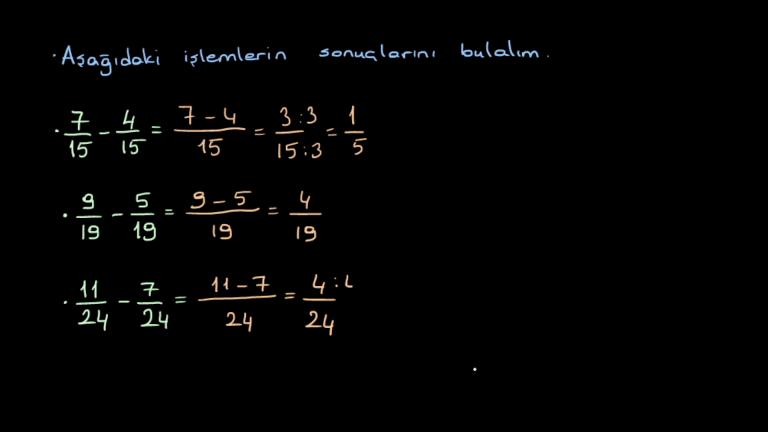 · Aşağıdaki işlemlerin sonuçlarını bulalım.
· 7/15 - 4/15 = 7 - 4/15 = 3:3/15:3 = 1/5
· 9/19 - 5/19 = 9 - 5/19 = 4/19
· 11/24 - 7/24 = 11 - 7/24 = 4:/24